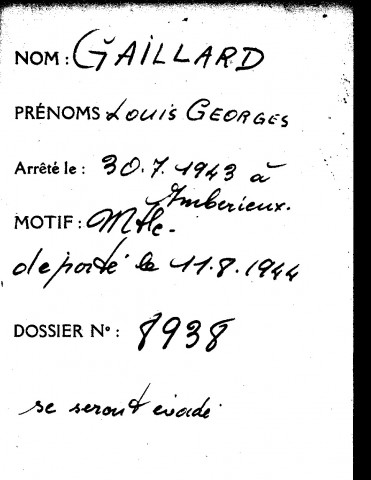 NOM : GAILLARD
PRÉNOMS Louis GEORGES
Arrêté le : 30.7.1943 à
Amberieux.
MOTIF : Mtle-
deporté le 11.8.1944
DOSSIER N° : 8938
se serait évadé